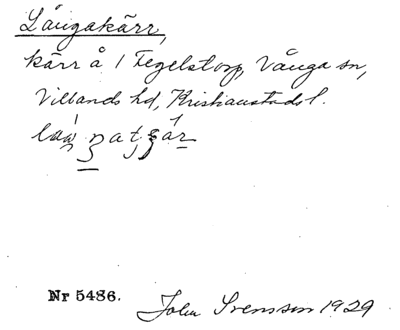 Långakärr,
kärr å 1 Tegelstorp, Vånga sn,
Villands hd, Kristianstads l.
Nr 5486.
John Svensson 1929